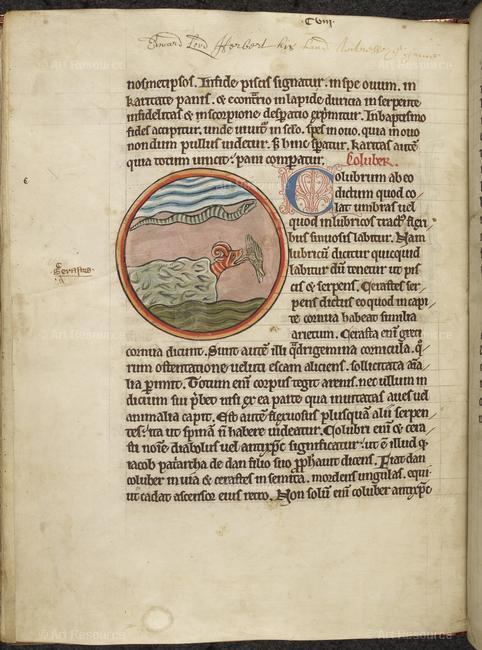 .Cviii.
Edward Lord Herbert his
nosmetipsos. Infide piscis signatur. inspe ouum. in
karitate panis. & econtrario inlapide duricia in serpente
infidelitas & inscorpione desperatio exprimitur. Inbaptismo
fides accipitur. unde uiuit' in seclo. spes in ouo. quia in ouo
non dum pullus uidetur. s; hinc speratur. karitas autē
quia totum uincit: pani comparatur. Coluber.
Colubrum ab eo
dictum quod co/
lat umbras uel
quod inlubricos tract' flexi/
bus sinuosis labitur. Nam
lubricū dicitur quicquid
labitur dū tenetur ut pis
cis & serpens. Cerastes ser/
pens dictus eo quod in capi/
te cornua habeat similia
Cerastus.
arietum. Cerasta enī greci
cornua dicunt. Sunt autē illi q̄drigemina cornicula. q̄/
rum ostentatione ueluti escam aliciens. sollicitata aīa/
lia perimit. Totum enī corpus tegit arenis. nec ullum in
dicium sui p̄bet nisi ex ea parte qua inuitatas aues uel
animalia capit. Est autē flexuosus plusquā alii serpen/
tes: ita ut spinā n̄ habere uideatur. Colubri enī & cera/
sti noīe diabolus uel antixp̄c significatur: ut ē illud q̄
iacob patiarcha de dan filio suo pphauit dicens. Fiat dan
coluber in uia & cerastes in semita. mordens ungulas. equi
ut cadat ascensor eius retro. Non solū enī coluber antixp̄c
© Art Resource